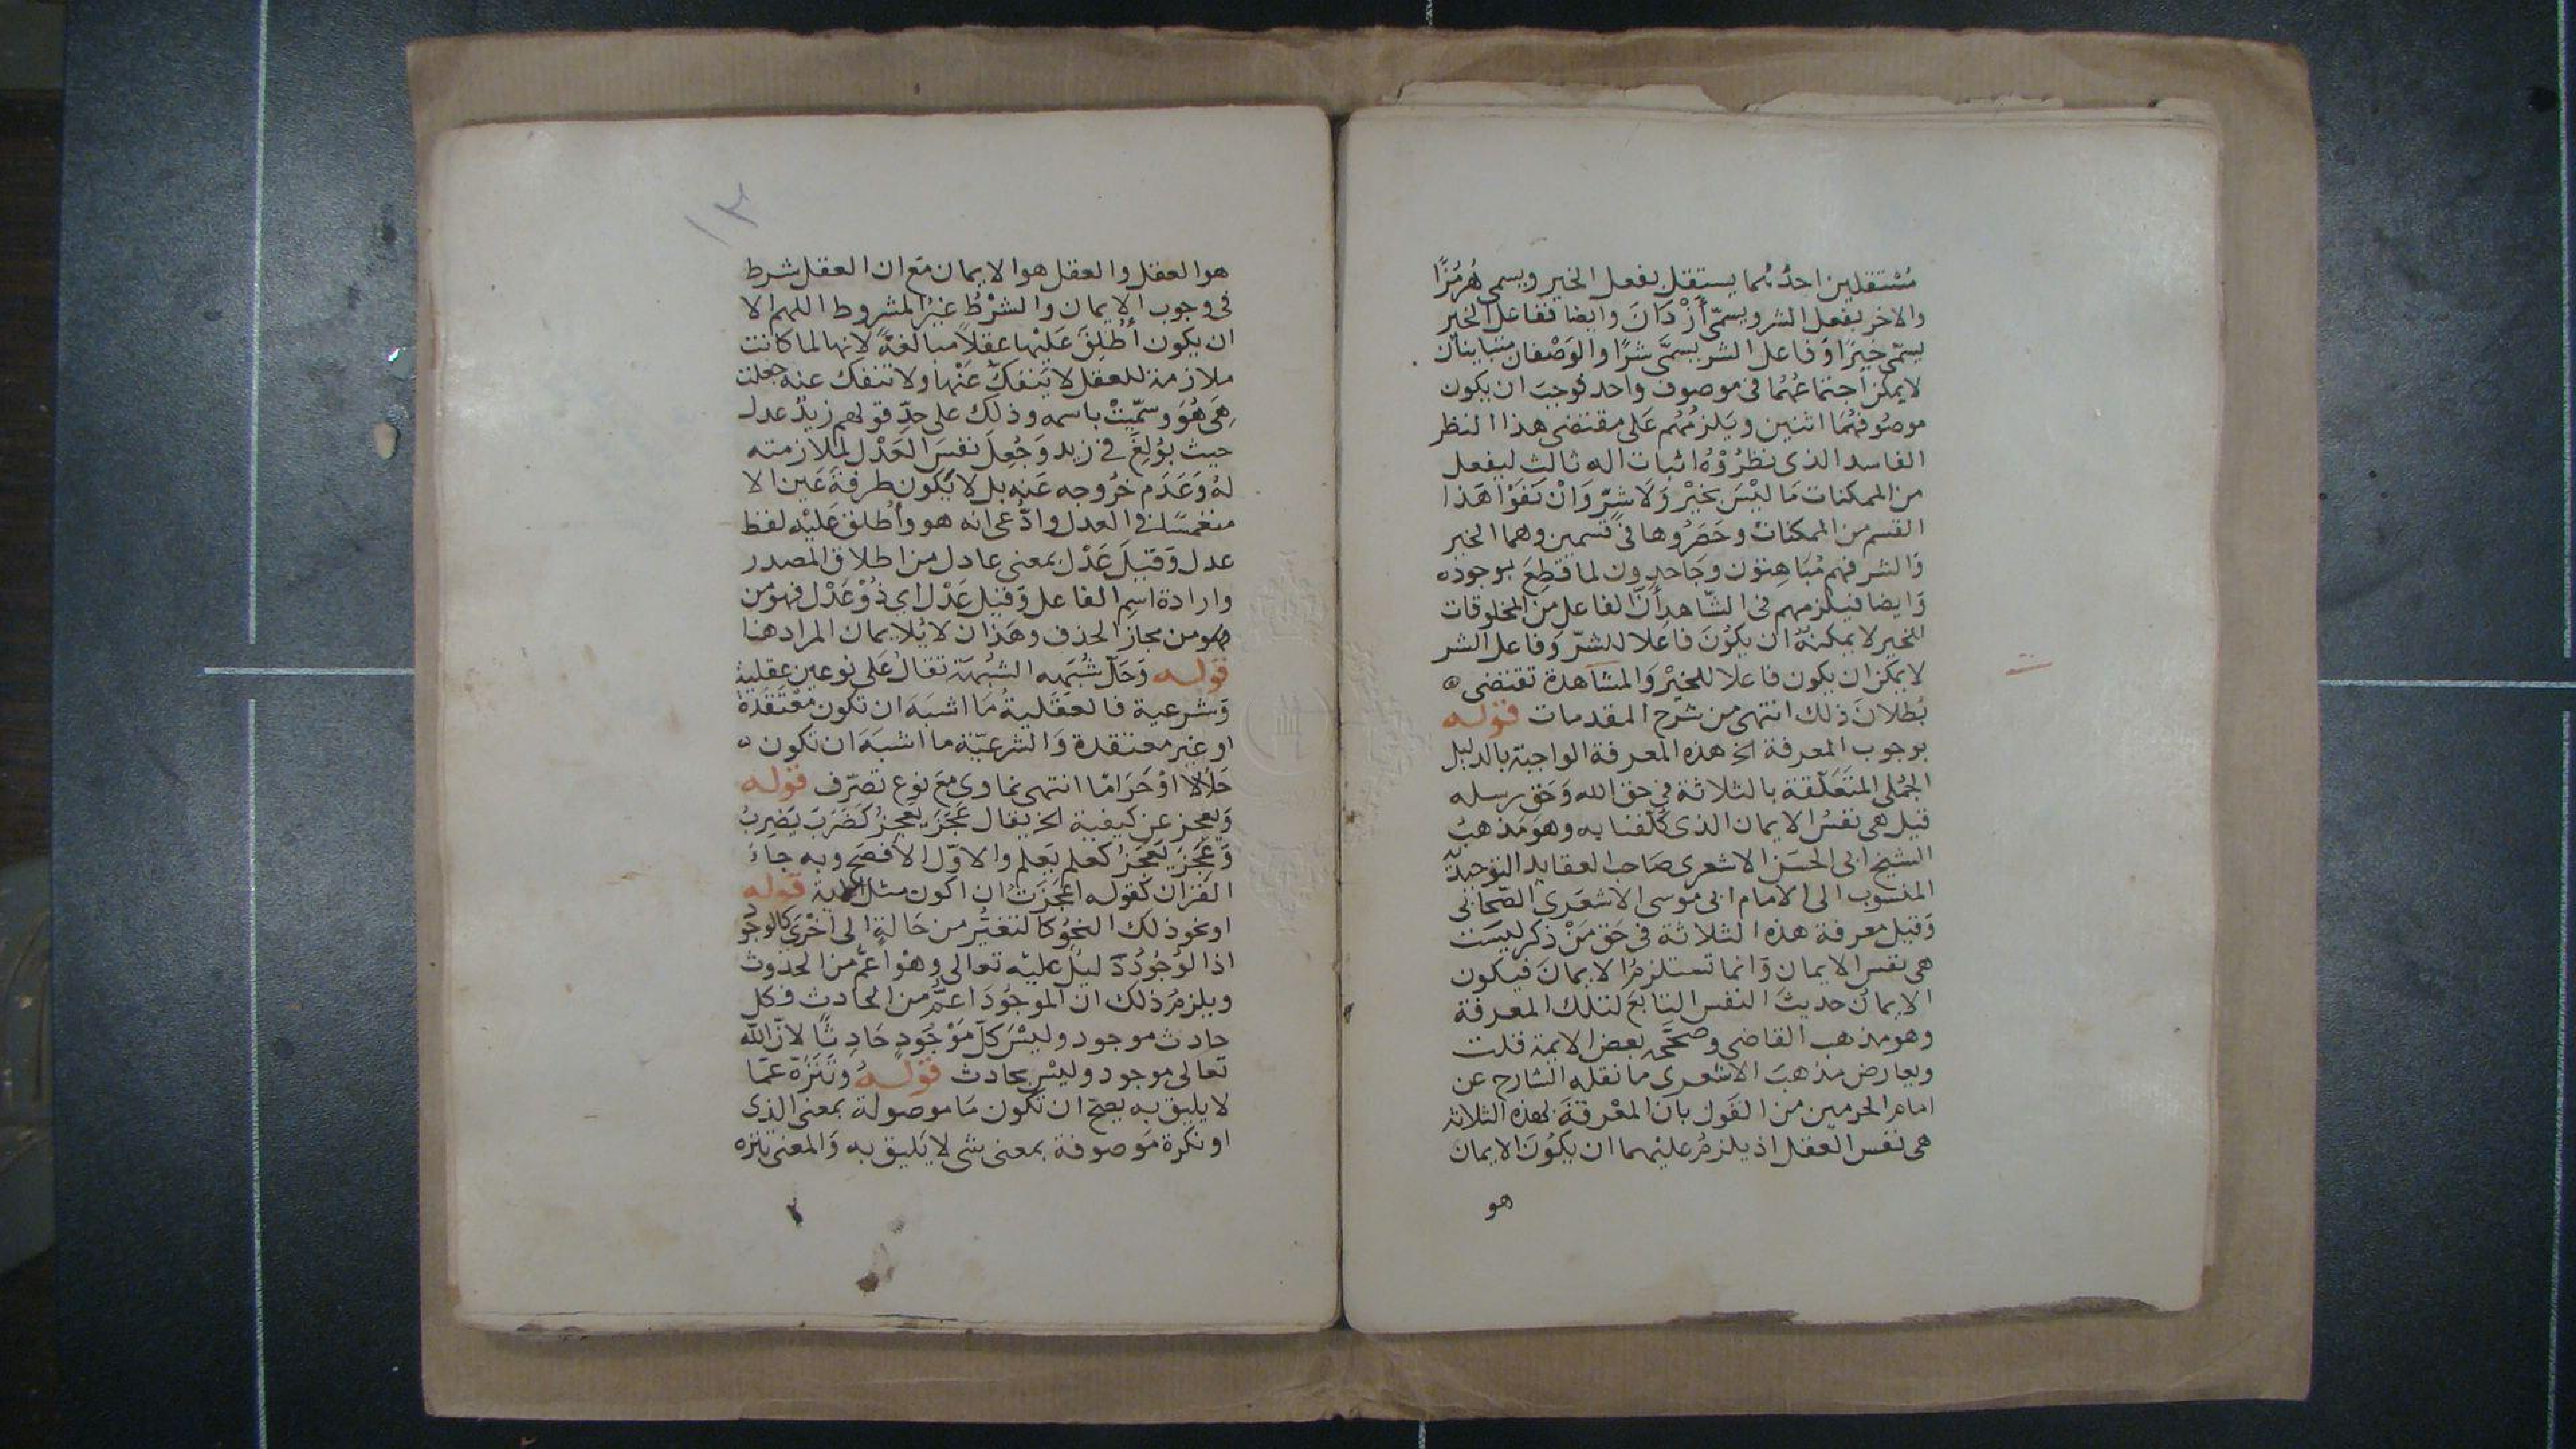 مُسْتقلين احدُهما يستقل بفعل الخير ويسمى هُرمُزًا
والاخر بفعل الشر ويسمّى أزْدَانَ وايضا ففاعل الخير
يسمّى خيرًا وَفاعل الشر يسمَّى شرًا والوَصْفان متباينان
لا يمكن اجتماعُهُما فى موصوف واحد فوجبَ ان يكون
موصُوفهُمَا اثنين ويَلزمُهُم عَلى مقتضى هذا النظر
الفاسد الذى نظرُوْهُ اثبات اله ثالث ليفعل
من الممكنات مَا ليْسَ بخيْر وَلَا شرّ وَانْ نَفَوْا هَذا
القسم من الممكناتْ وحَصَرُوها فى قسمين وهما الخير
وَالشر فهم مُبَاهِتوُن وجَاحدون لما قطِعَ بوجوده
وَايضا فيلزمهم فى الشّاهد أنَّ الفاعل من المخلوقات
للخير لا يمكنهُ ان يكوُنَ فاعِلا للشرّ وَفاعل الشر
لا يمكن ان يكون فاعلا للخيْر وَالمشاهدة تقتضى
بُطلانَ ذلك انتهى من شرح المقدمات قوله
بوجوب المعرفة الخ هذه المعرفة الواجبَة بالدليل
الجُملى المتَعَلّقة بالثلاثة فى حق الله وَحَق رسله
قيل هى نفسُ الايمان الذى كلّفنا به وهوَ مَذهبُ
الشيخ ابى الحسَن الاشعرى صَاحب العقايد التوحيديّة
المنسوب الى الامام ابى موسى الاشعَرى الصّحابى
وَقيل معرفة هذه الثلاثة فى حَق مَنْ ذكر ليسَت
هى نفس الايمان وَانما تستلزمُ الايمانَ فيكون
الايمانُ حديثَ النفس التابعَ لتلك المعرفة
وهو مذهب القاضى وصحّحَه بعض الايمة قلت
ويعارض مذهبَ الاشعرى ما نقله الشارح عن
امام الحرمين من القَول بان المعْرفةَ بهذه الثلاثة
هى نفس العقل اذ يلزمُ عليهما ان يكوُنَ الايمان
هو
١٣
هو العقل والعقل هو الايمان مَع ان العقل شرط
فى وجوب الايمان والشرْطُ غيْرُ المشروط اللهم الا
ان يكون أُطْلِقَ عَليْها عقلاً مبالغةً لانها لما كانت
ملازمة للعقل لا يَنفكّ عَنْها ولا تنفك عنه جعلت
هِىَ هُوَ وسمّيتْ باسمه وذلك على حدّ قولهم زيدٌ عدل
حيث بوُلِغَ فى زيد وَجُعِلَ نفسَ العَدْل لملازمته
لهُ وَعَدَم خرُوجه عَنه بل لا يَكون طرفةَ عَين الا
منغمسًا فى العدل وادّعى انه هو وأُطلق عَليْه لفظ
عدل وَقيلَ عَدْل بمعنى عادل من اطلاق المصدر
وارادة اسم الفاعل وَقيل عَدْل اى ذُوْ عَدْل فهو من
من مجاز الحذف وهَذان لا يُلايمان المراد هنا
قوله وَحَلّ شُبَهه الشبْهَة تقالُ عَلى نوعين عقلية
وَشرعية فالعَقلية مَا اشبَهَ ان تكون مُعْتقَدة
او غير معتقدة وَالشرعيّة ما اشبَهَ ان تكون
حَلالا اوْ حَرَامًا انتهى نماوى مَعَ نوع تصَرّف قوله
وَيعجز عن كيفية الخ يقال عَجَزَ يَعجِزُ كضَرَبَ يَضرِبُ
وَعَجِزَ يَعجَزُ كعَلم يَعلم والاوّل الافصَح وبه جاءَ
القرْان كقوله اعجَزتُ ان اكون مثل الاية قوله
او نحو ذلك النحوُ كالتغيُّر من حَالةٍ الى اخْرَى كالوجود
اذ الوُجُوْدُ دَليل عليْه تعالى وهوْ اعمّ من الحدوث
ويلزمُ ذلك ان الموجُوْدَ اعمُّ من الحادث فكل
حادث موجود وليْسَ كلّ مَوْجُوْدٍ حَادِثًا لانّ الله
تعالى موجود وليْس بحادث قوله وتَنَزُّهُ عمّا
لا يليق به يصحّ ان تكون مَا موصولة بمعنى الذى
او نكرة مَوصوفة بمعنى شى لا يَليق به وَالمعنى تنزه